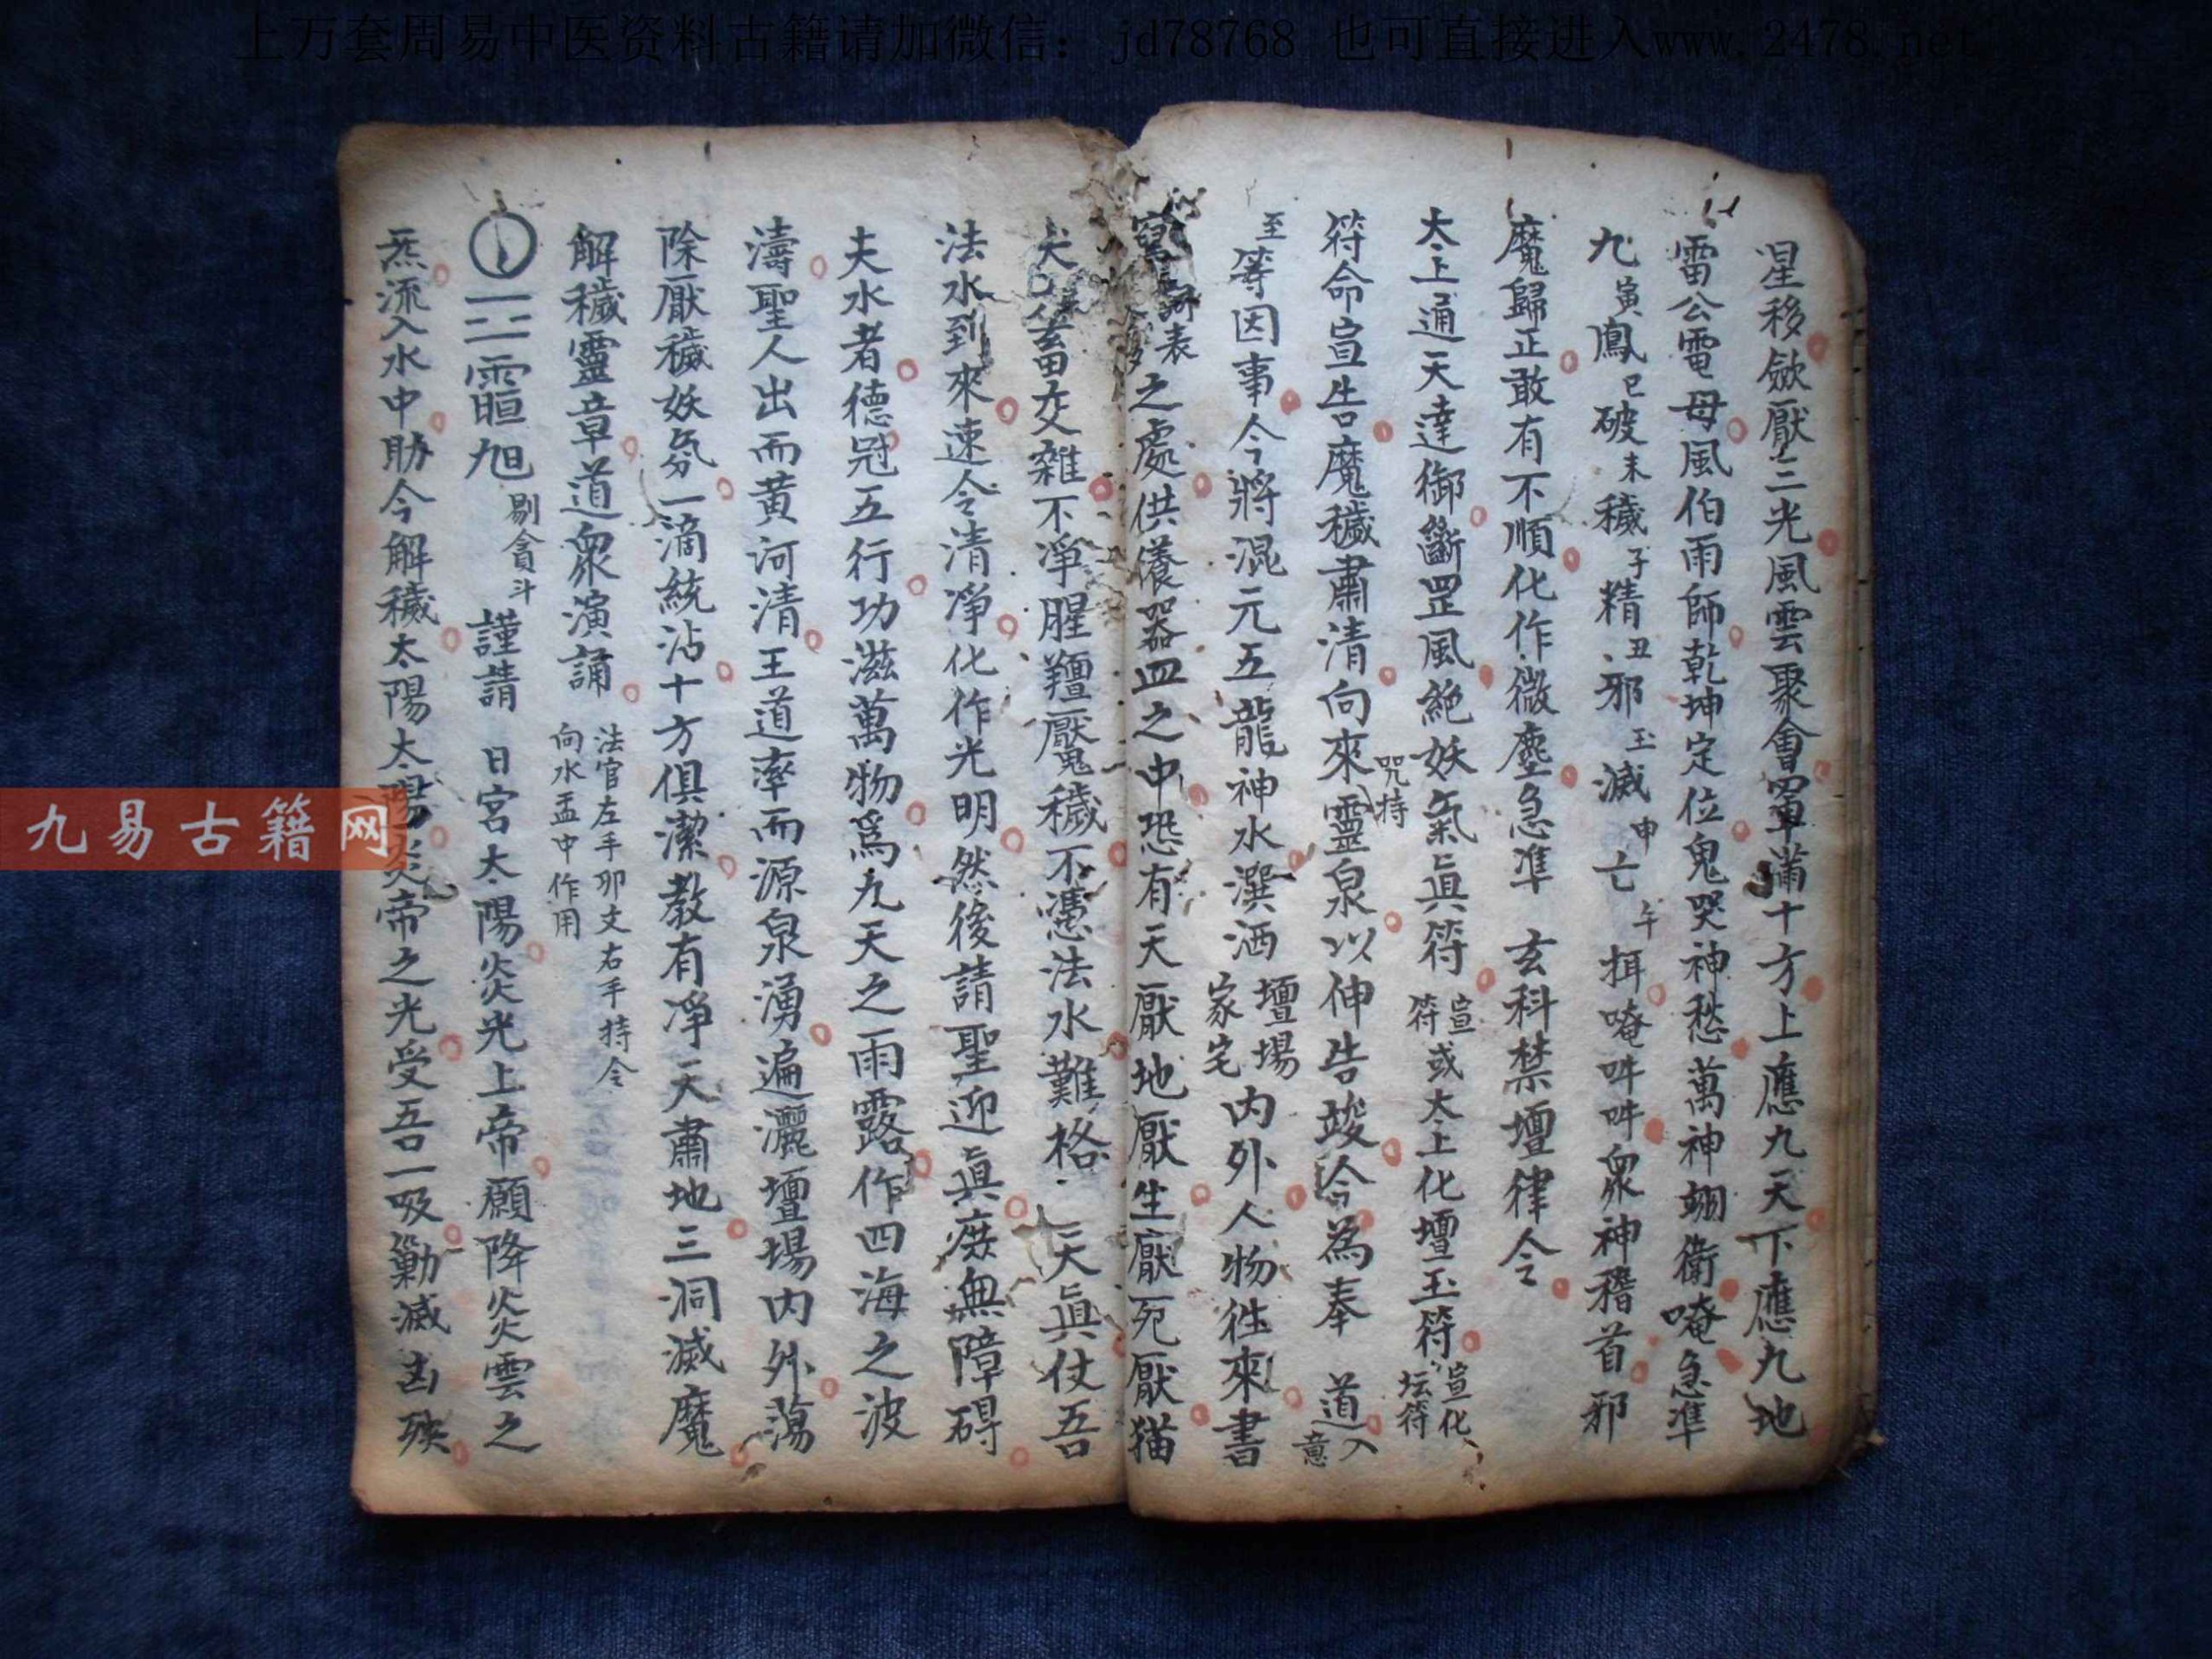 上万套周易中医资料古籍请加微信：jd78768 也可直接进入www.2478.net
星移歛厭三光風雲聚會罩滿十方上應九天下應九地
雷公電母風伯雨師乾坤定位鬼哭神愁萬神翊衛唵急準
九寅鳳巳破未穢子精丑邪玉滅申亡午揖唵吽吽衆神稽首邪
魔歸正敢有不順化作微塵急準 玄科禁壇律令
太上通天達御斷罡風絶妖氣眞符宣符或太上化壇玉符宣化坛符
符命宣告魔穢肅清向來咒持靈泉以伸告竣今為奉 道入意
至等因事今將混元五龍神水潠洒壇場家宅内外人物徃來書
寫詞表之處供儀器皿之中恐有天厭地厭生厭死厭猫
犬畜交雜不淨腥羶魘穢不憑法水難格 天眞仗吾
法水到來速令清淨化作光明然後請聖迎眞庶無障碍
夫水者德冠五行功滋萬物爲九天之雨露作四海之波
濤聖人出而黄河清王道率而源泉湧遍灑壇場内外蕩
除厭穢妖氛一滴統沾十方俱潔教有淨天肅地三洞滅魔
解穢靈章道衆演誦 法官左手卯文右手持令向水盂中作用
䨓暅旭 剔貪斗 謹請 日宮太陽炎光上帝願降炎雲之
炁流入水中助今解穢太陽太陽炎帝之光受吾一吸勦滅凶殃
九易古籍网